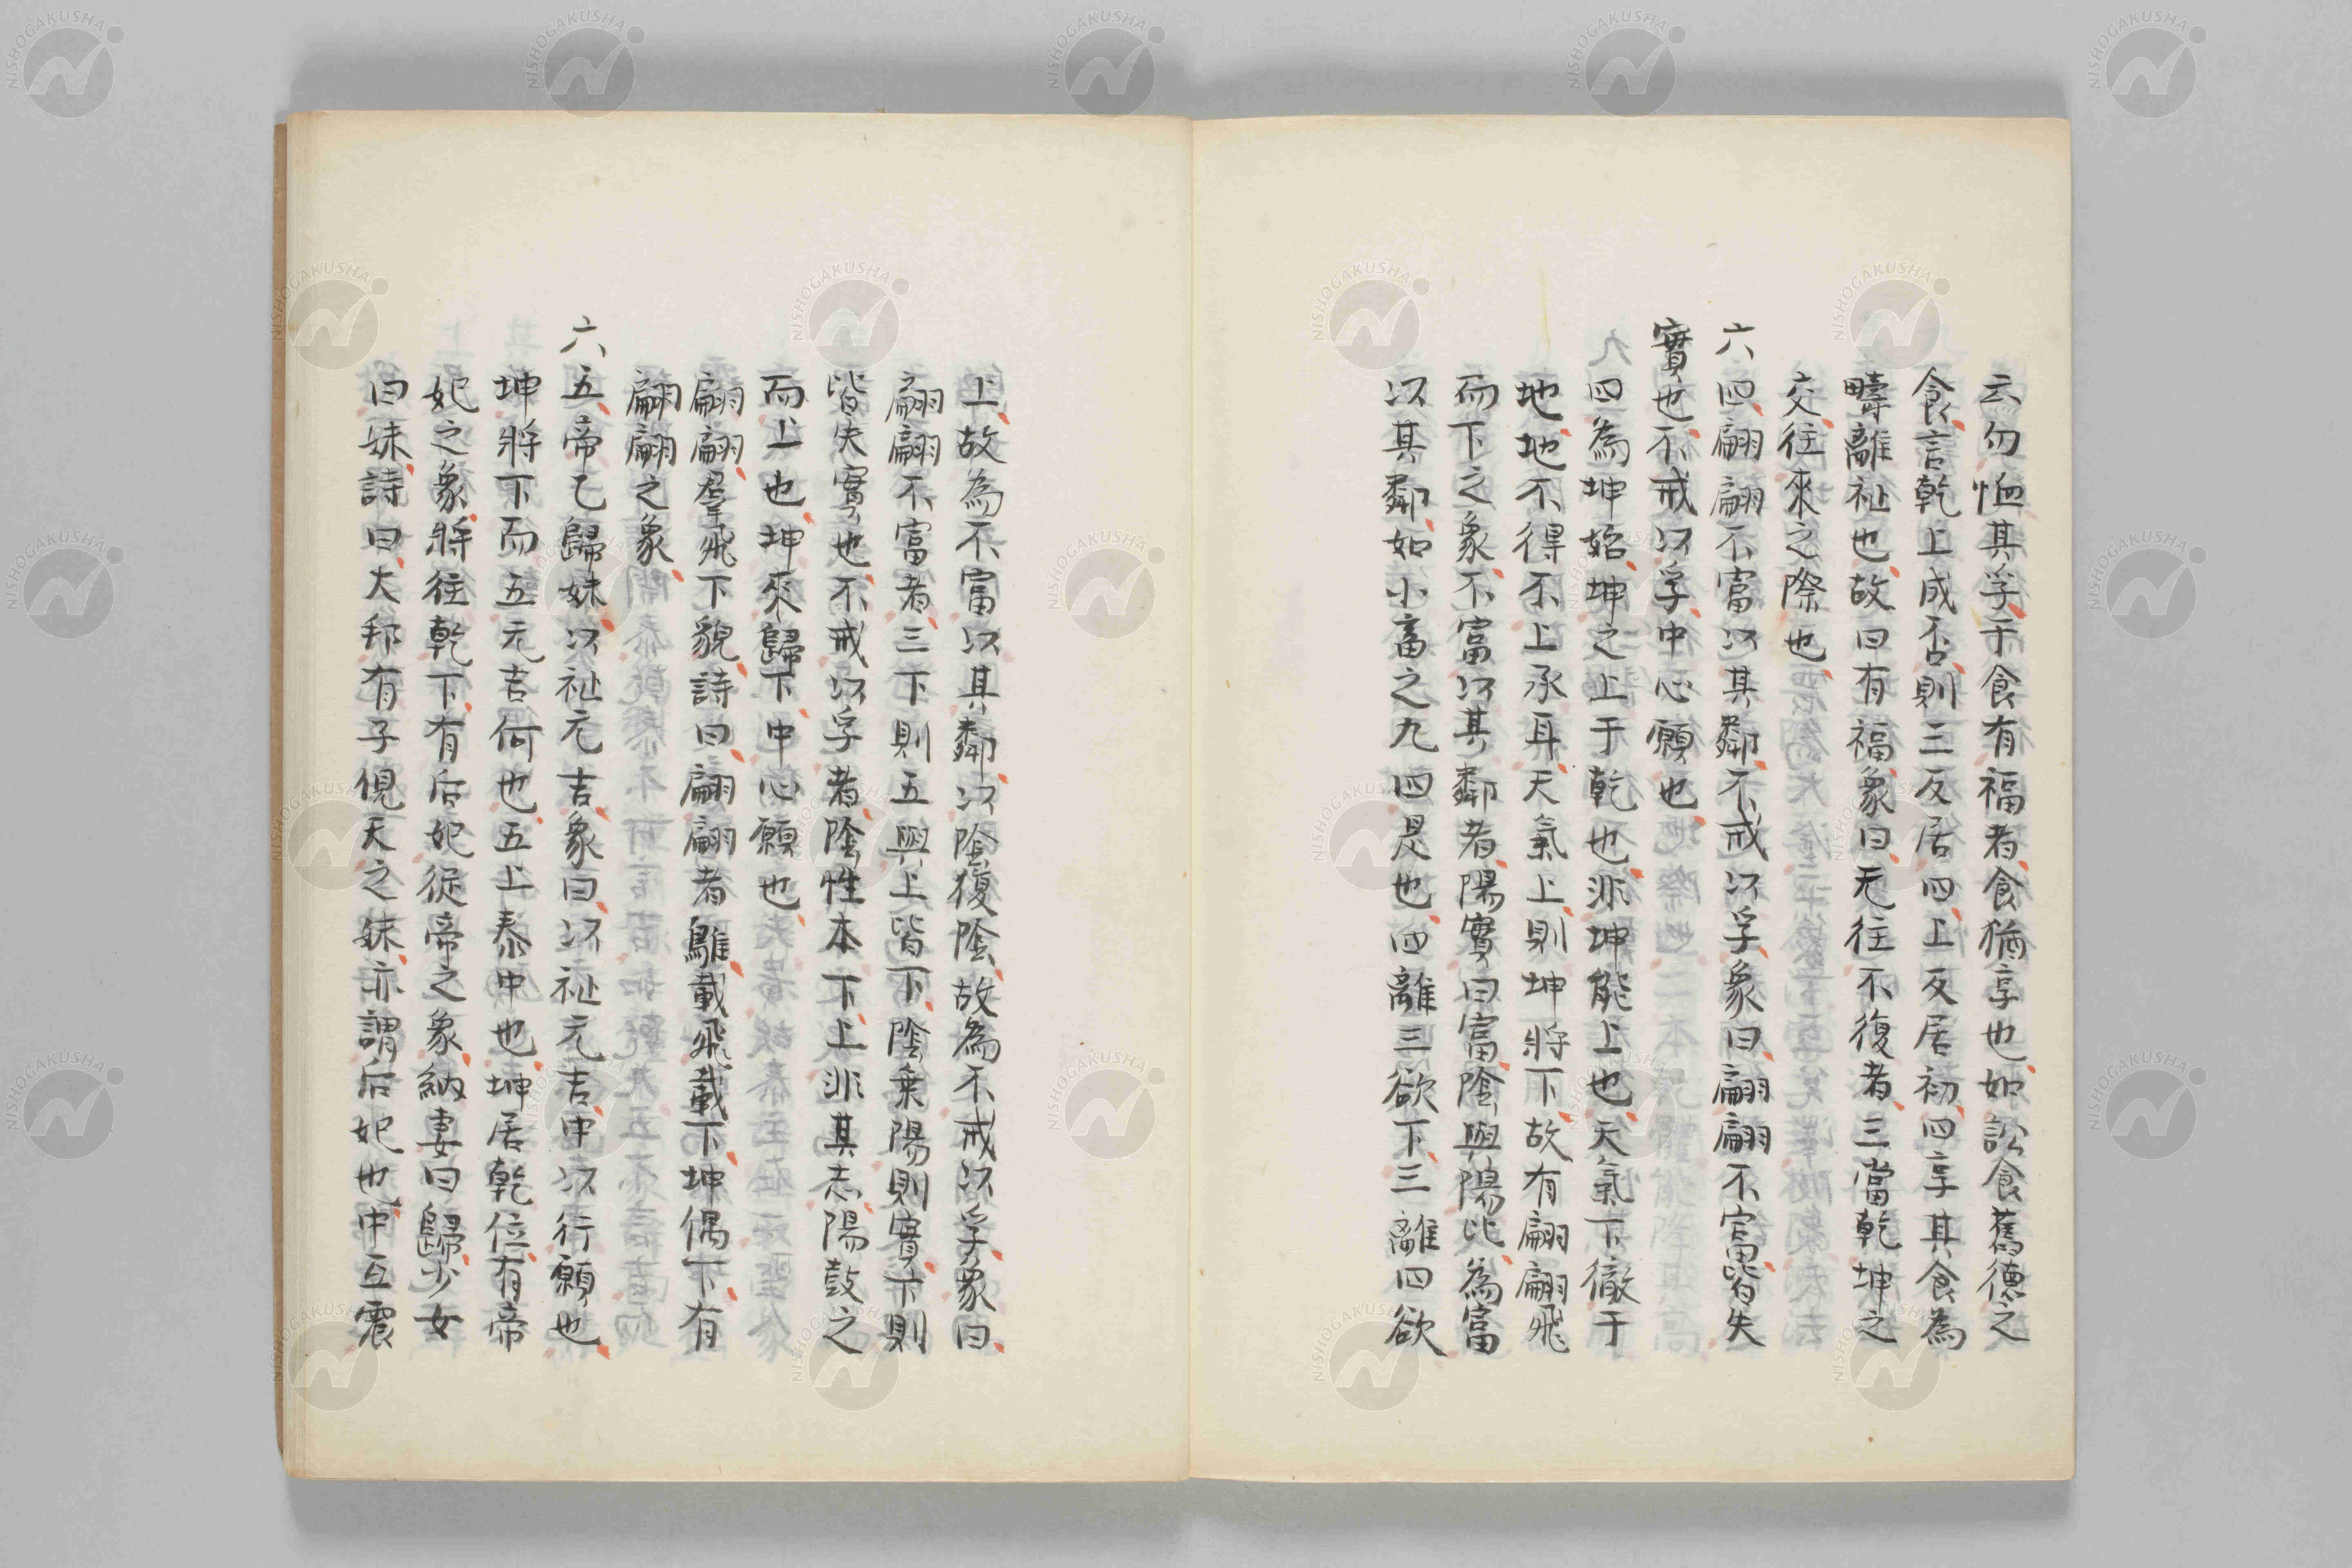 云勿恤其孚于食有福者食猶享也如訟食舊德之
食言乾上成否則三反居四上反居初四享其食為
疇離祉也故曰有福象曰无往不復者三當乾坤之
交往來之際也
六四翩翩不富以其鄰不戒以孚象曰翩翩不富皆失
實也不戒以孚中心願也
四為坤始坤之上于乾也非坤能上也天氣下徹于
地地不得不上承耳天氣上則坤將下故有翩翩飛
而下之象不富以其鄰者陽實曰富陰與陽比為富
以其鄰如小畜之九四是也四離三欲下三離四欲
上故為不富以其鄰以陰復陰故為不戒以孚象曰
翩翩不富者三下則五與上皆下陰乗陽則實下則
皆失實也不戒以孚者陰性本下上非其志陽鼓之
而上也坤來歸下中心願也
翩翩羣飛下貌詩曰翩翩者鵻載飛載下坤偶下有
翩翩之象
六五帝乙歸妹以祉元吉象曰以祉元吉中以行願也
坤將下而五元吉何也五上泰中也坤居乾位有帝
妃之象將往乾下有后妃從帝之象納妻曰歸少女
曰妹詩曰大邦有子俔天之妹亦謂后妃也中互震
NISHOGAKUSHA